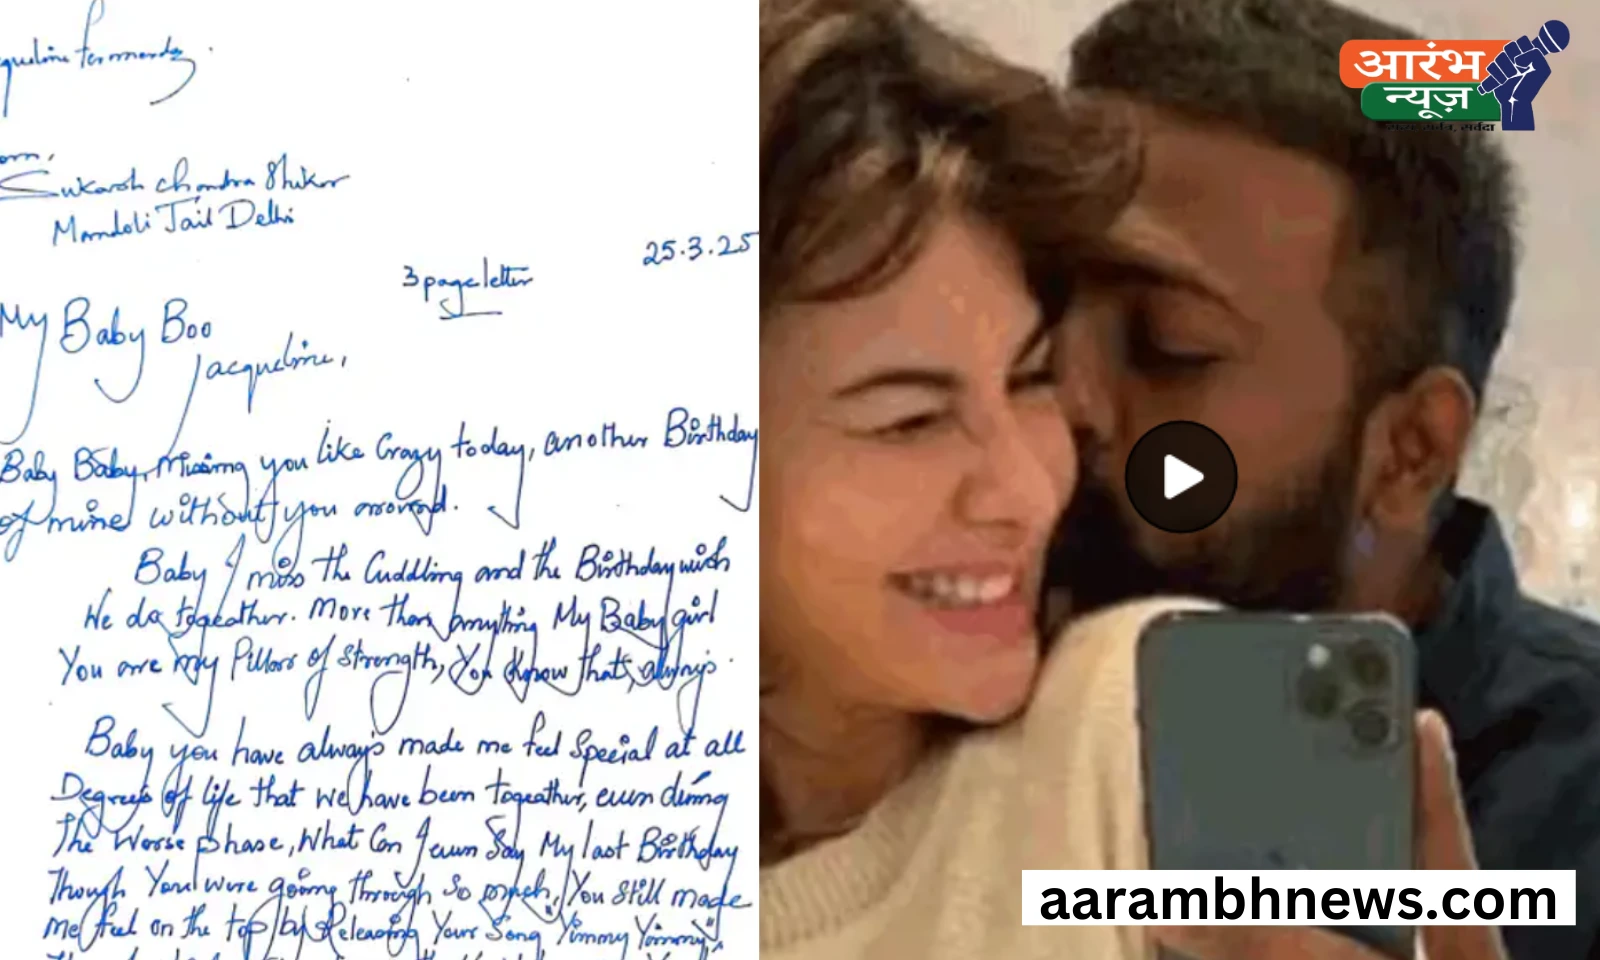 queline Fernandez.
om,
Sukarsh Chandra Shikar
Mandoli Jail Delhi
25.3.25
3 page letter
My Baby Boo
Jacqueline,
Baby Baby, Missing you like Crazy today, another Birthday
of mine without you around.
Baby I miss the Cuddling and the Birthday wish
We do togeather. More than anything My Baby girl
You are My Pillar of Strength, You Know that, always.
Baby you have always made me feel Special at all
Degrees of life that we have been togeather, even during
The Worse phase, What Can I even Say My last Birthday
Though You were going through So much, You Still made
me feel on the top by Releasing Your Song "Yimmy Yimmy"
आरंभ
न्यूज़
aarambhnews.com